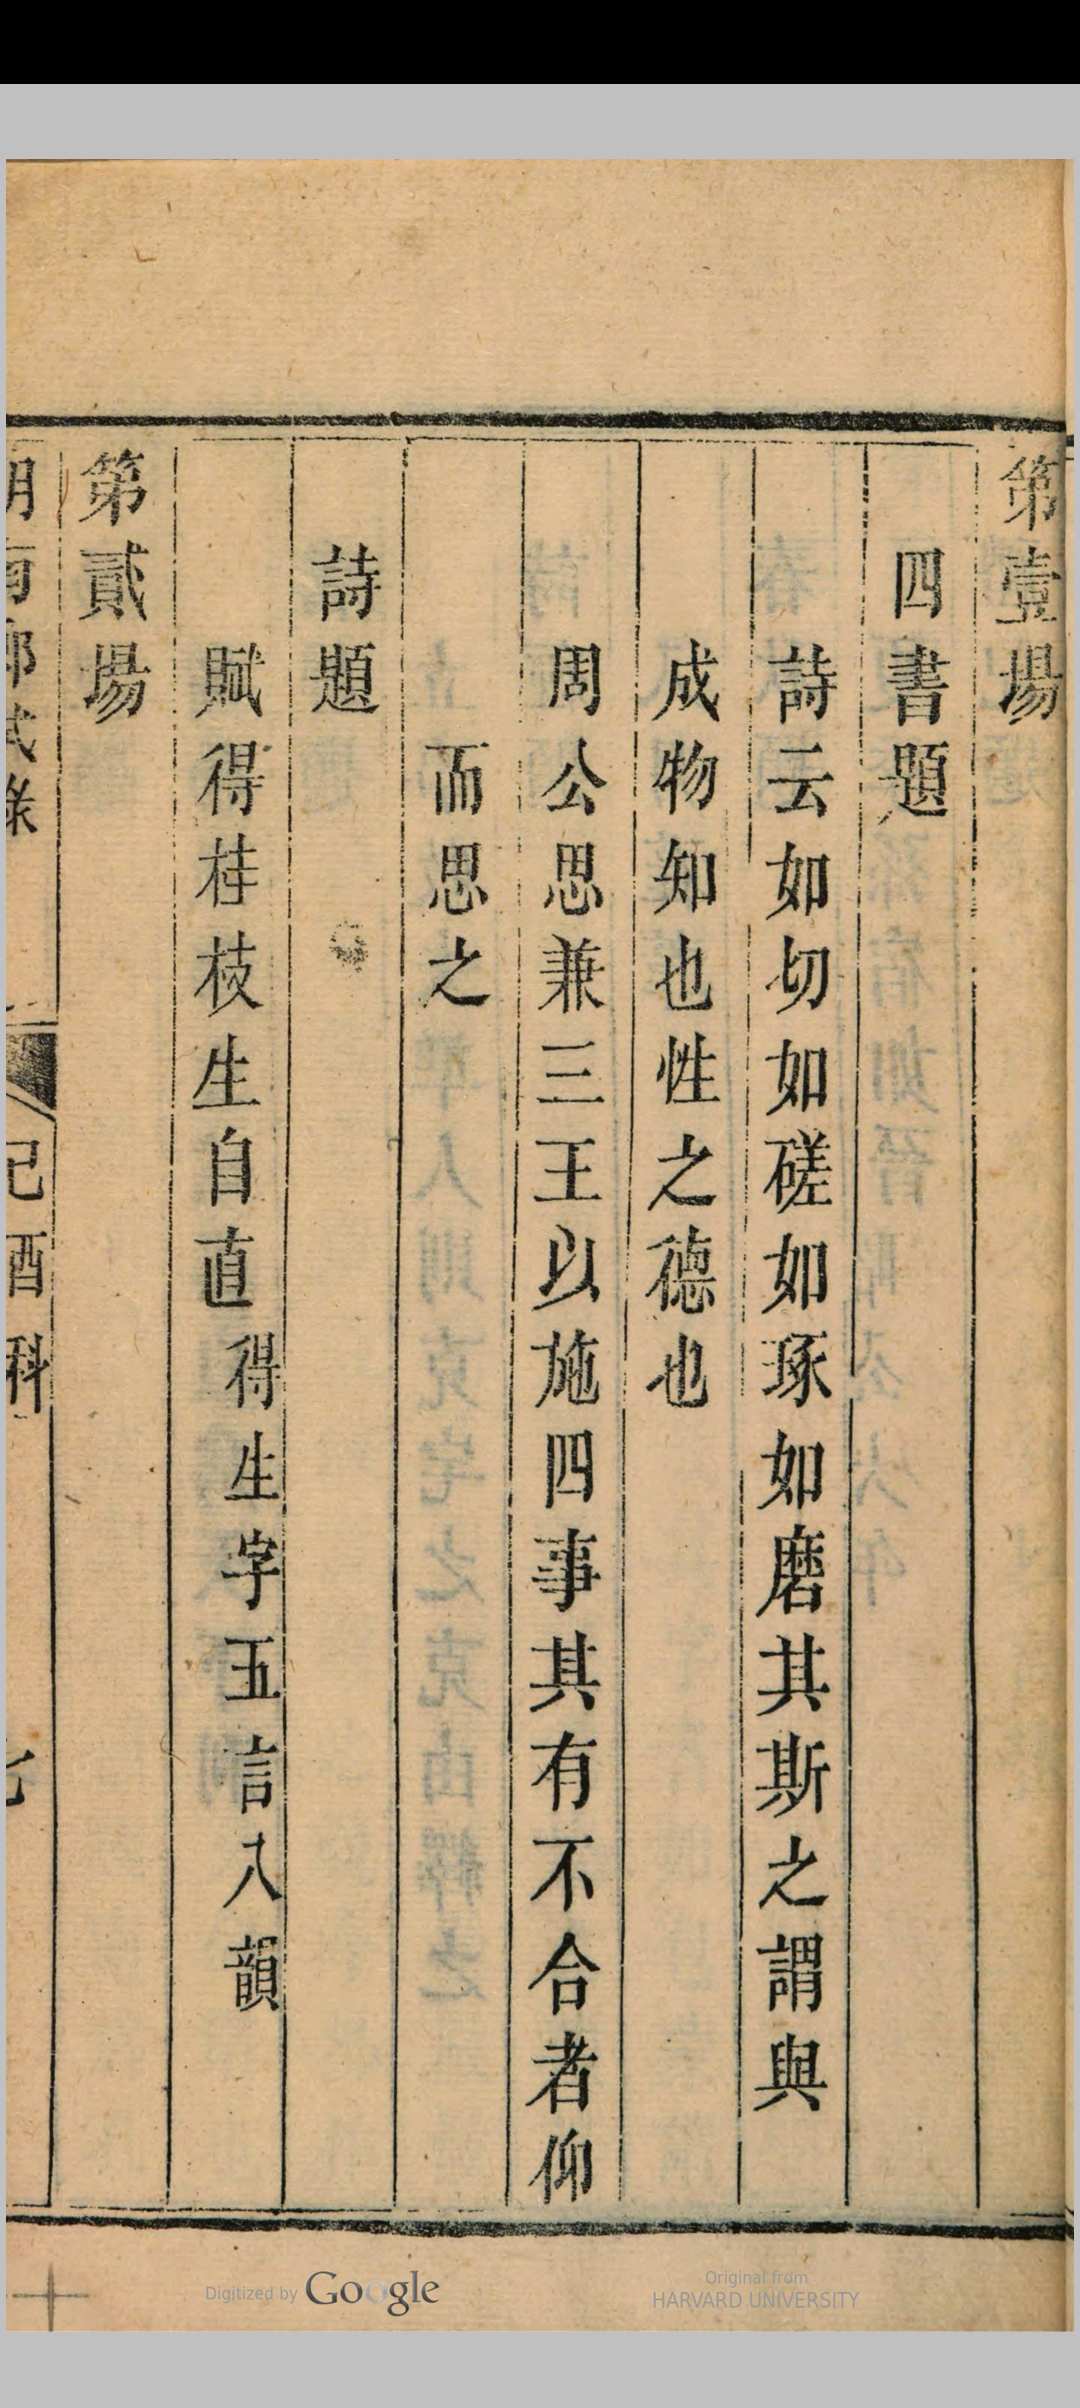 第壹場
四書題
詩云如切如磋如琢如磨其斯之謂與
成物知也性之德也
周公思兼三王以施四事其有不合者仰
而思之
詩題
賦得桂枝生自直得生字五言八韻
第貳場
湖南鄉試錄 己酉科 七
Digitized by Google
Original from
HARVARD UNIVERSITY